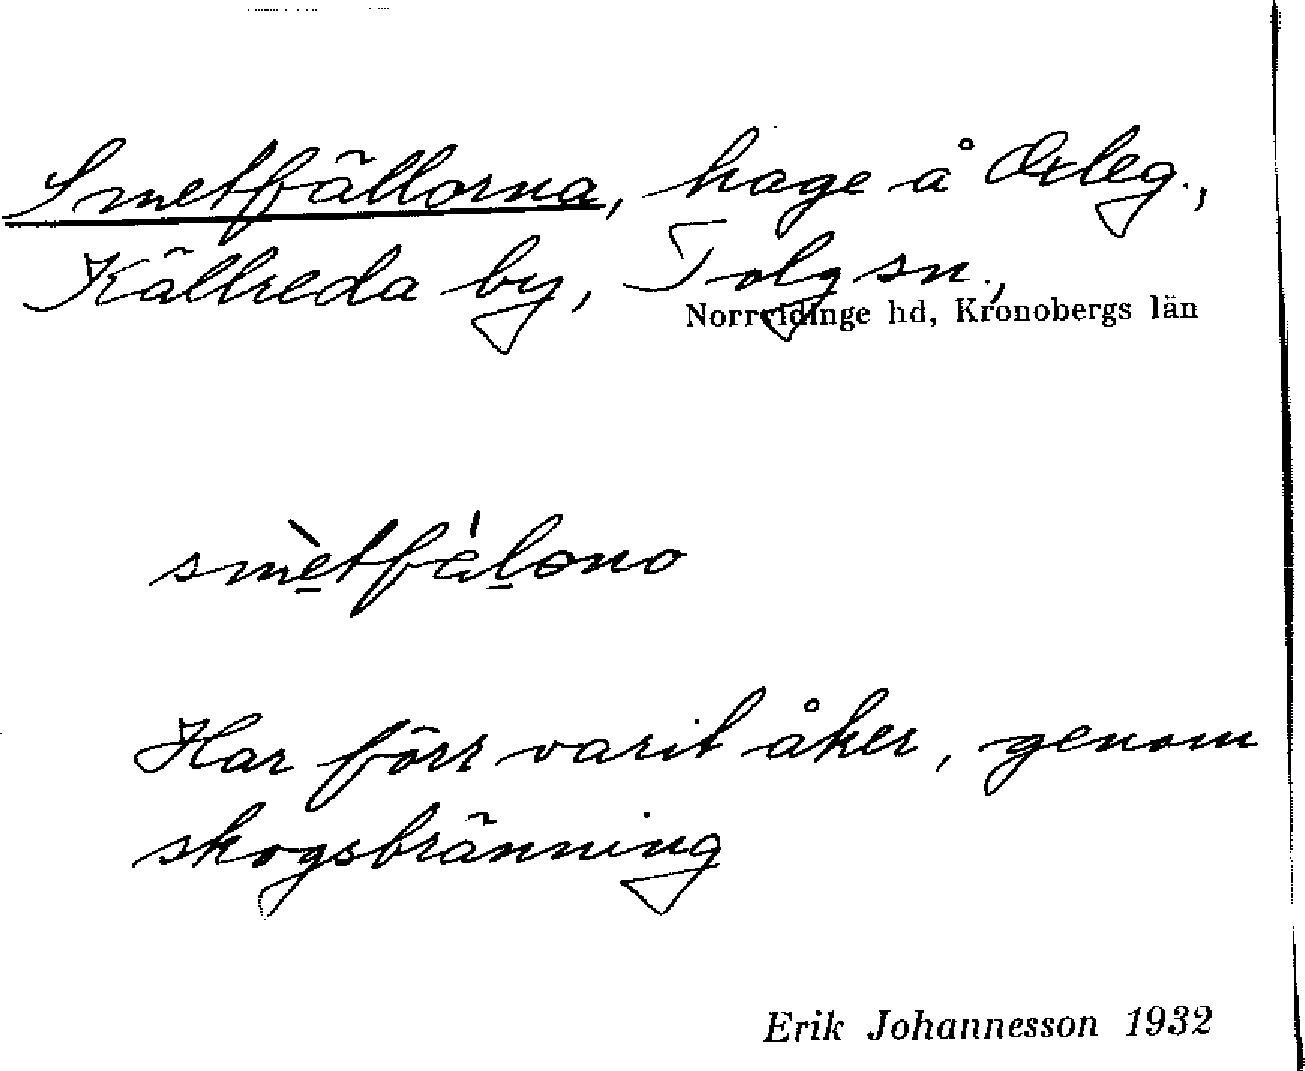 Smetfällorna, hage å Östeg.,
Källreda by, Tolg sn.,
Norrvidinge hd, Kronobergs län
smètfálono
Har förr varit åker, genom
skogsbränning
Erik Johannesson 1932